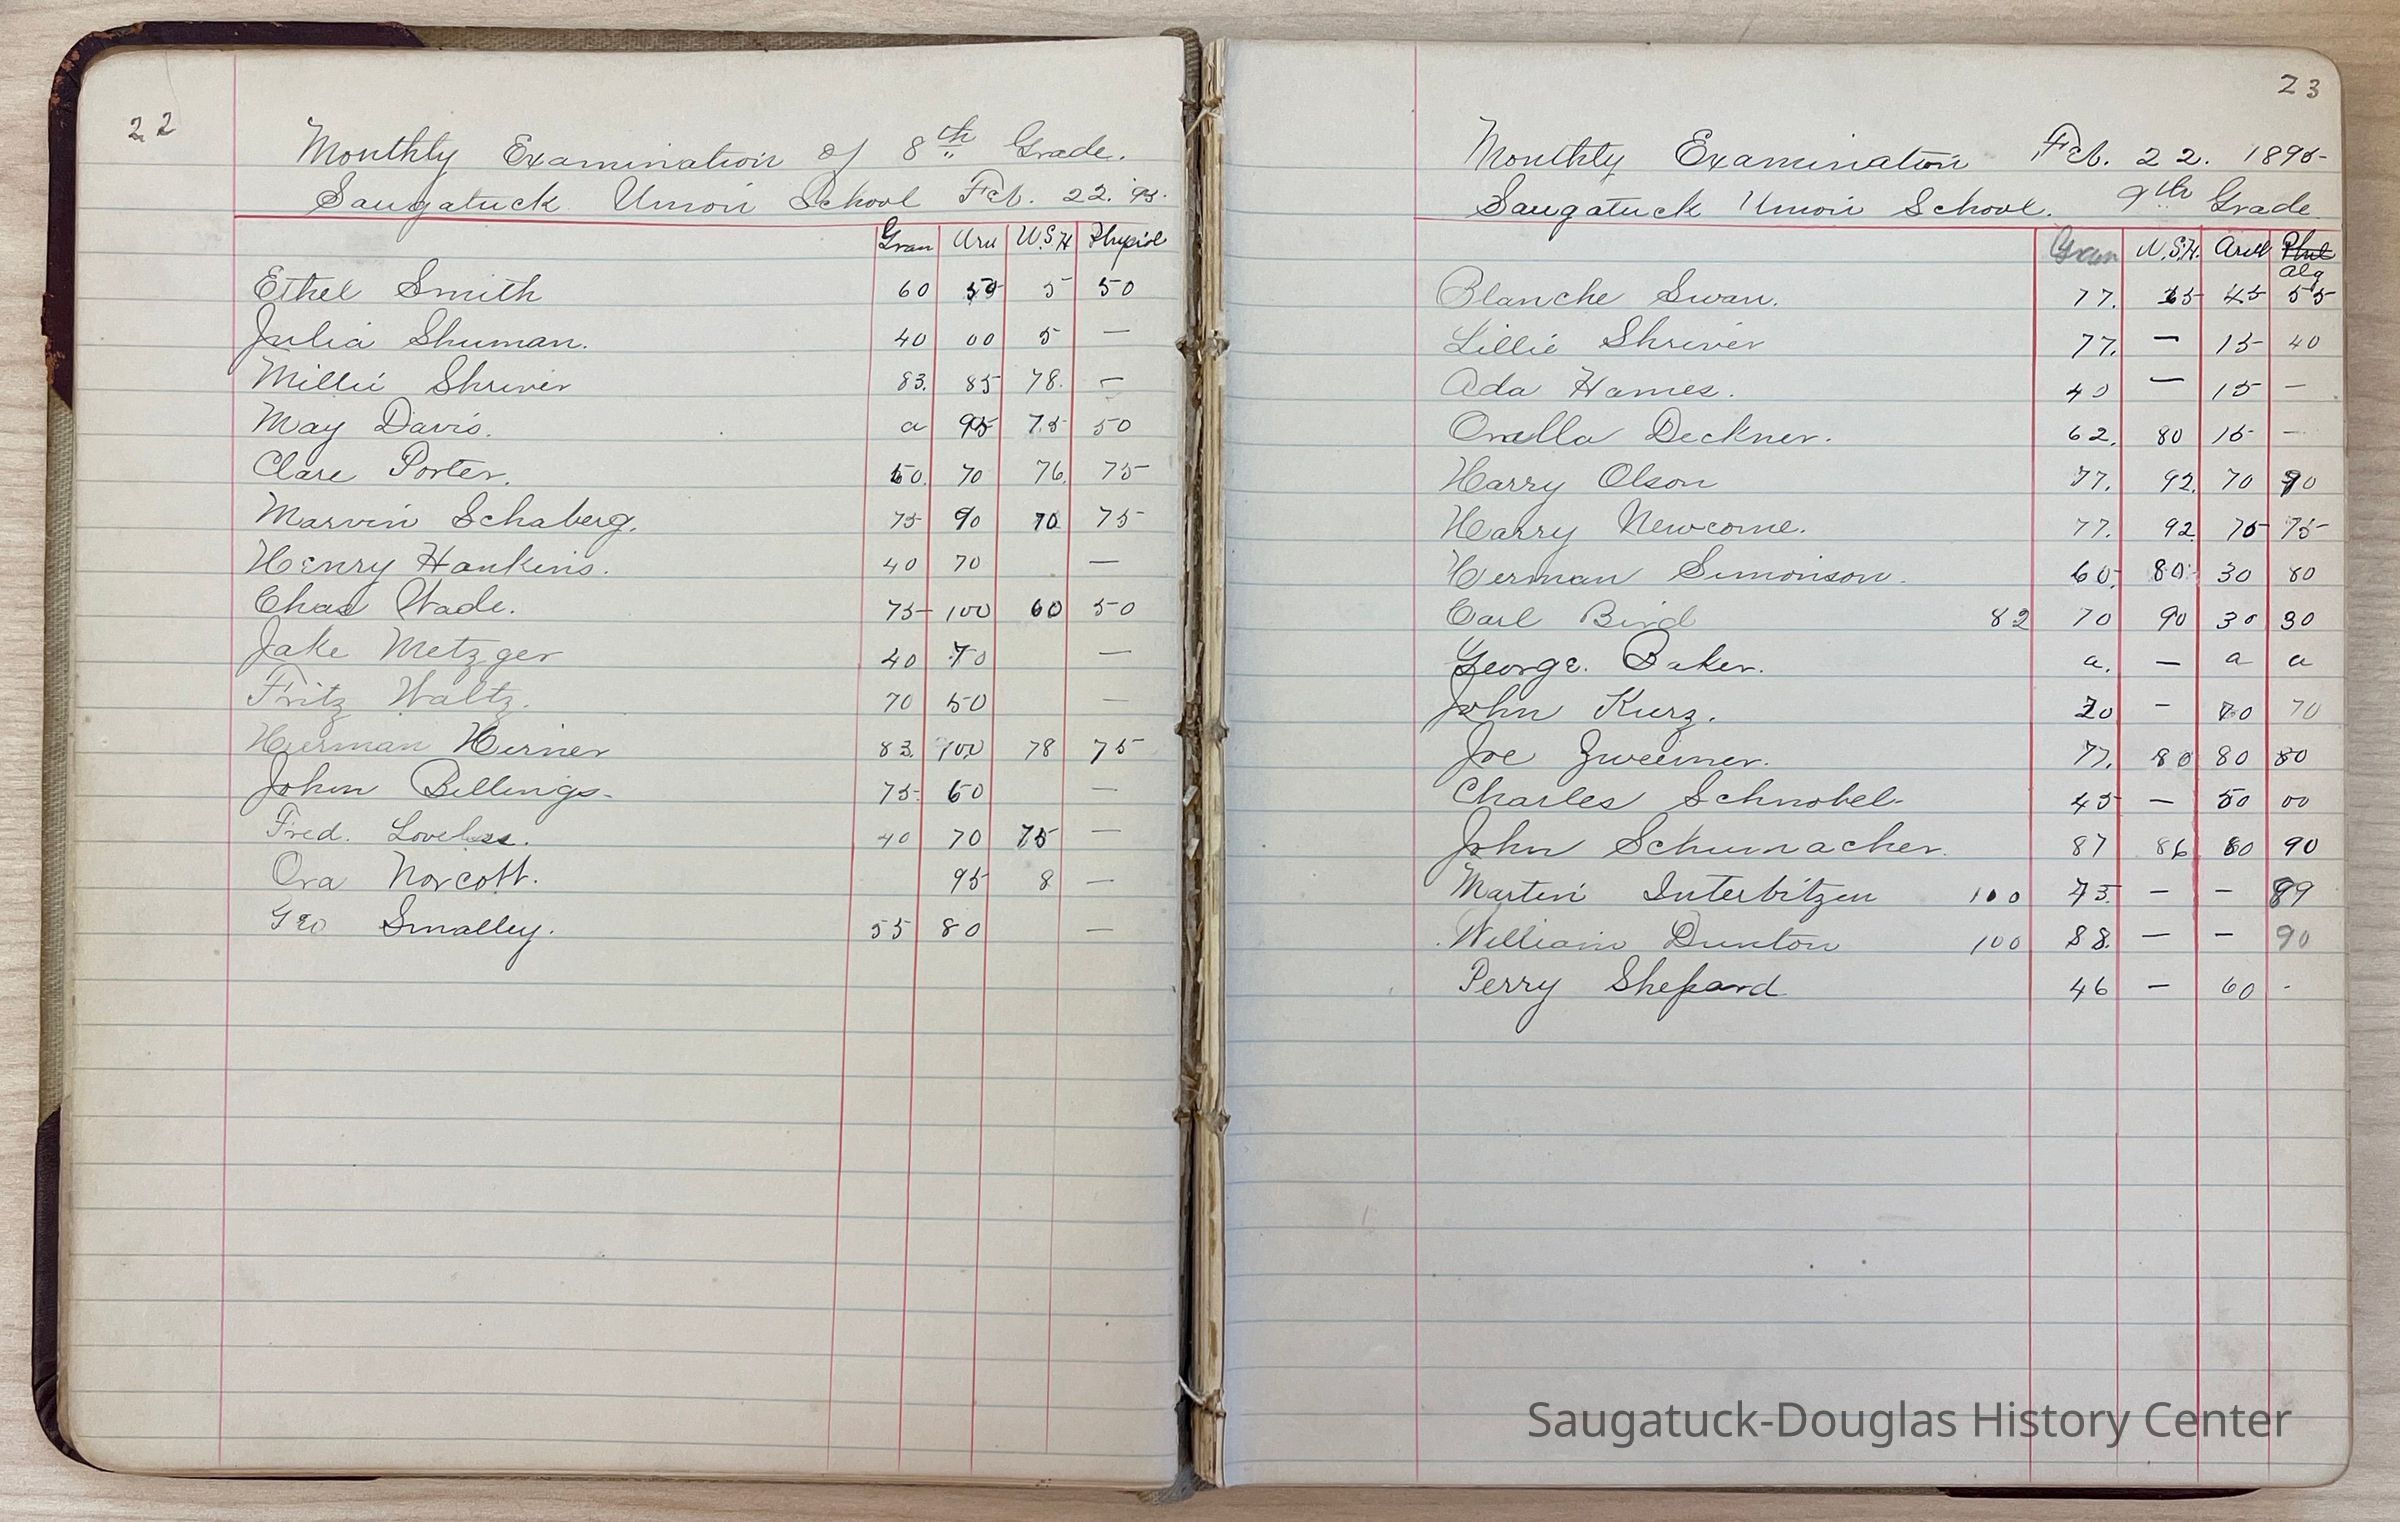 22
Monthly Examination of 8th Grade.
Saugatuck Union School Feb. 22. '95.
Gram Arit U.S.H Physiol
Ethel Smith 60 5 50
Julia Shuman. 40 00 5 —
Millie Shriver 83. 85 78. —
May Davis. a 95 75 50
Clare Porter. 70 76. 75
Marvin Schaberg. 75 90 70 75
Henry Hankins. 40 70 —
Chas Wade. 75 100 60 50
Jake Metzger 40 70 —
Fritz Waltz. 70 50 —
Herman Hirner 83. 100 78 75
John Billings. 75. 60 —
Fred. Loveless. 40 70 75 —
Ora Norcott. 95 8 —
Geo Smalley. 55 80 —
23
Monthly Examination Feb. 22. 1895
Saugatuck Union School. 9th Grade
Gram U.S.H. Arith Phil
Alg
Blanche Swan. 77. 45 55
Lillie Shriver 77. — 15 40
Ada Hames. 40 — 15 —
Orella Deckner. 62. 80 15 —
Harry Olson 77. 92. 70 90
Harry Newcome. 77. 92. 75 75
Herman Simonson. 60. 80 30 80
Carl Bird 82 70 90 30 30
George. Baker. a. — a a
John Kurz. — 70 70
Joe Zweemer. 77. 80 80 80
Charles Schnobel. 45 — 50 00
John Schumacher. 87 86 80 90
Martin Interbitzen 100 — — 99
William Dunton 100 88. — — 90
Perry Shepard 46 — 60 .
Saugatuck-Douglas History Center